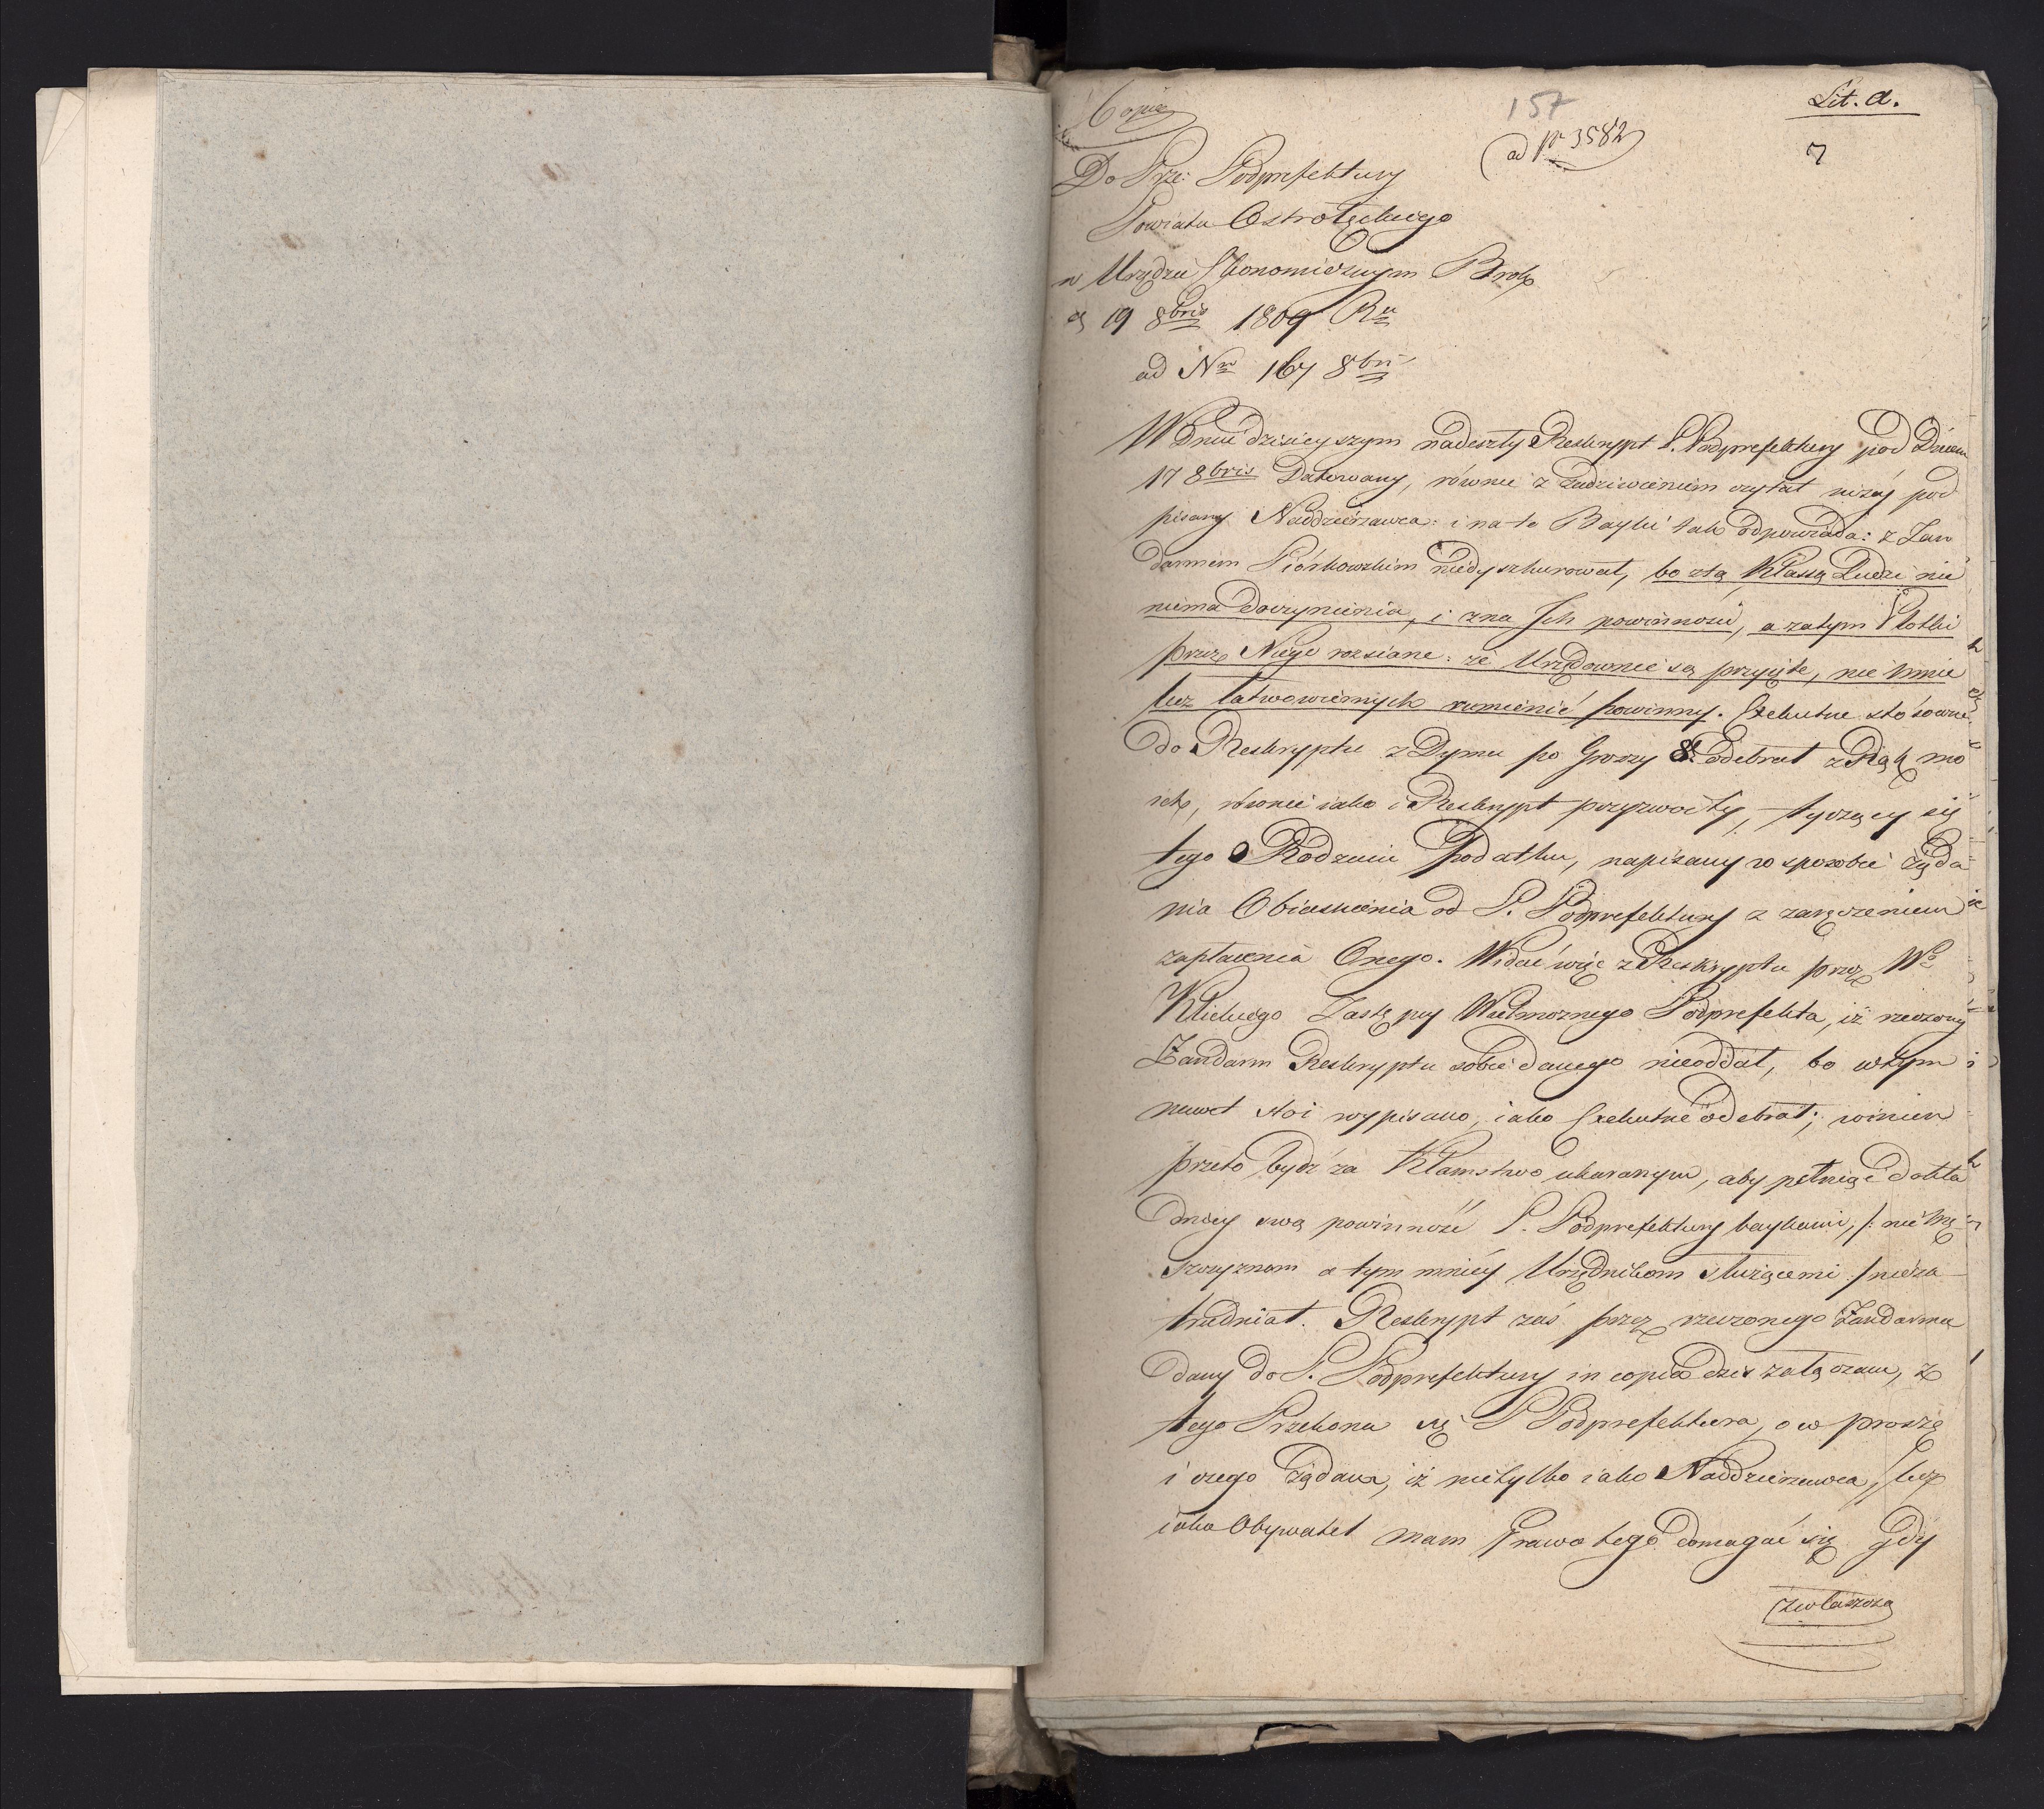 Copia
157
Lit. a.
ad Nr 3582
7
Do Prze: Podprefektury
Powiatu Ostrołęckiego
w Urzędzie Ekonomicznym Brok
d 19 8bris 1809 Ru
ad Nro 167 8bri
W Dniu dzisieyszym nadeszły Reskrypt P. Podprefektury pod Dniem
17 8bris Datowany, równie z zadziwieniem czytał niżéy pod
pisany Naddzierżawca: i na te Bayki tak odpowiada: z Zan
darmem Piórkowskim niedyszkurował, bo z tą Klassą Ludzi nic
niema doczynienia, i zna Ich powinności, a zatym Plotki
przez Niego rozsiane: że Urzędownie są przyięte, nie mnie
lecz łatwowiernych rumienić powinny. Exekutne stósownie
do Reskryptu z Dymu po Groszy 8. odebrał z Rąk mo
ich, równie iako i Reskrypt przyzwoity, tyczący się
tego Rodzaiu Podatku, napisany w sposobie żąda
nia Obiaśnienia od P. Podprefektury z zaręczeniem
zapłacenia Onego. Widać więc z Reskryptu przez Wo
Klickiego Zastępcy Wielmożnego Podprefekta, iż rzeczony
Zandarm Reskryptu sobie danego nieoddał, bo w tym
nawet stoi wypisano, iako Exekutne odebrał; winien
przeto bydź za Kłamstwo ukaranym, aby pełniąc dokła
dniey swą powinność P. Podprefektury baykami, /: nie Mę
szczyznom a tym mniéy Urzędnikom służącemi :/ nieza
trudniał. Reskrypt zaś przez rzeczonego Zandarma
dany do P. Podprefektury in copia dziś załączam, z
tego Przekona się P Podprefektura, o co proszę
i czego żądam, iż nietylko iako Naddzierżawca, lecz
iako Obywatel mam Prawo tego domagać się gdy
zwłaszcza